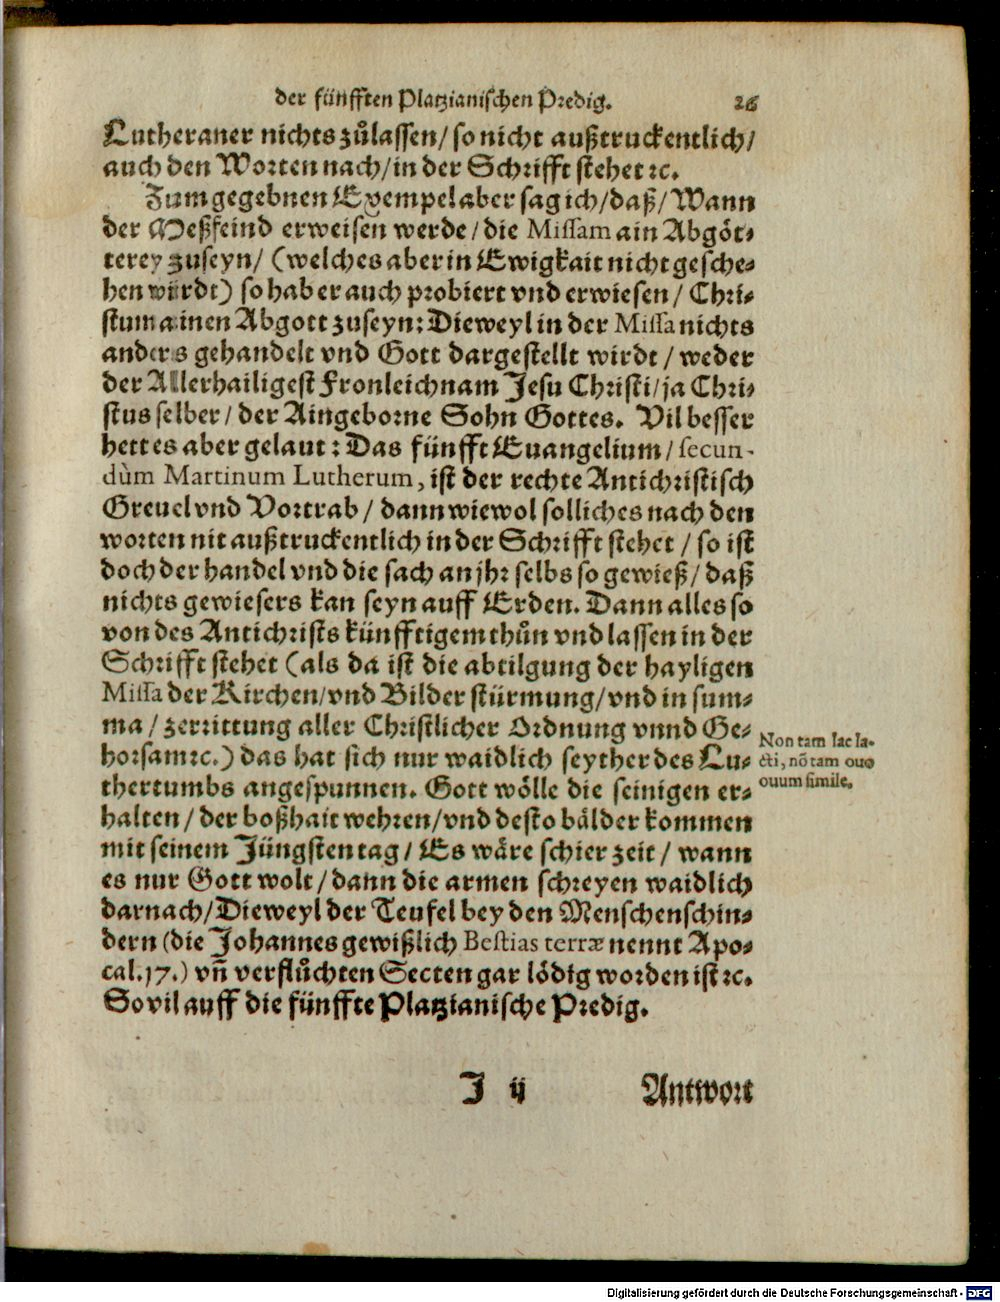 der fünfften Platzianischen Predig. 26
Lutheraner nichts zůlassen/ so nicht außtruckentlich/
auch den Worten nach/ in der Schrifft stehet ꝛc.
Zum gegebnen Exempel aber sag ich/ daß/ Wann
der Meßfeind erweisen werde/ die Missam ain Abgöt⸗
terey zuseyn/ (welches aber in Ewigkait nicht gesche⸗
hen wirdt) so hab er auch probiert vnd erwiesen/ Chri⸗
stum ainen Abgott zuseyn: Dieweyl in der Missa nichts
anders gehandelt vnd Gott dargestellt wirdt/ weder
der Allerhailigest Fronleichnam Jesu Christi/ ja Chri⸗
stus selber/ der Aingeborne Sohn Gottes. Vil besser
hett es aber gelaut: Das fünfft Euangelium/ secun-
dùm Martinum Lutherum, ist der rechte Antichristisch
Greuel vnd Vortrab/ dann wiewol solliches nach den
worten nit außtruckentlich in der Schrifft stehet/ so ist
doch der handel vnd die sach an jhr selbs so gewieß/ daß
nichts gewiesers kan seyn auff Erden. Dann alles so
von des Antichrists künfftigem thůn vnd lassen in der
Schrifft stehet (als da ist die abtilgung der hayligen
Missa der Kirchen/ vnd Bilder stürmung/ vnd in sum⸗
ma/ zerrittung aller Christlicher Ordnung vnnd Ge⸗
horsam ꝛc.) das hat sich nur waidlich seyther des Lu⸗
thertumbs angespunnen. Gott wölle die seinigen er⸗
halten/ der boßhait wehren/ vnd desto bälder kommen
mit seinem Jüngsten tag/ Es wäre schier zeit/ wann
es nur Gott wolt/ dann die armen schreyen waidlich
darnach/ Dieweyl der Teufel bey den Menschenschin⸗
dern (die Johannes gewißlich Bestias terræ nennt Apo⸗
cal. 17.) vñ verflůchten Secten gar lödig worden ist ꝛc.
So vil auff die fünffte Platzianische Predig.
Non tam lac la-
cti, nõ tam ouo
ouum simile.
J ij Antwort
Digitalisierung gefördert durch die Deutsche Forschungsgemeinschaft - DFG